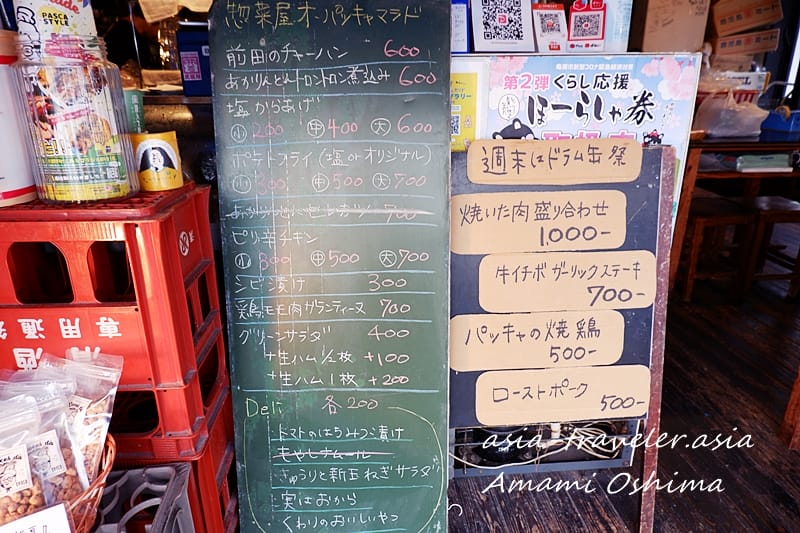 惣菜屋オーパッキャマラド
前田のチャーハン 600
あかりんとんトロントロン煮込み 600
塩からあげ
小 200 中 400 大 600
ポテトフライ(塩orオリジナル)
小 300 中 500 大 700
700
ピリ辛チキン
小 300 中 500 大 700
シビ漬け 300
鶏モモ肉ガランティーヌ 700
グリーンサラダ 400
+生ハム1/2枚 +100
+生ハム1枚 +200
Deli 各200
トマトのはちみつ漬け
もやしナムール
きゅうりと新玉ねぎサラダ
実はおから
くわりのおいしいやつ
週末はドラム缶祭
焼いた肉盛り合わせ
1,000-
牛イチボガーリックステーキ
700-
パッキャの焼鶏
500-
ローストポーク
500-
第2弾 くらし応援
ほーらしゃ券
PASCA
STYLE
専用通
酒
asia-traveler.asia
Amami Oshima